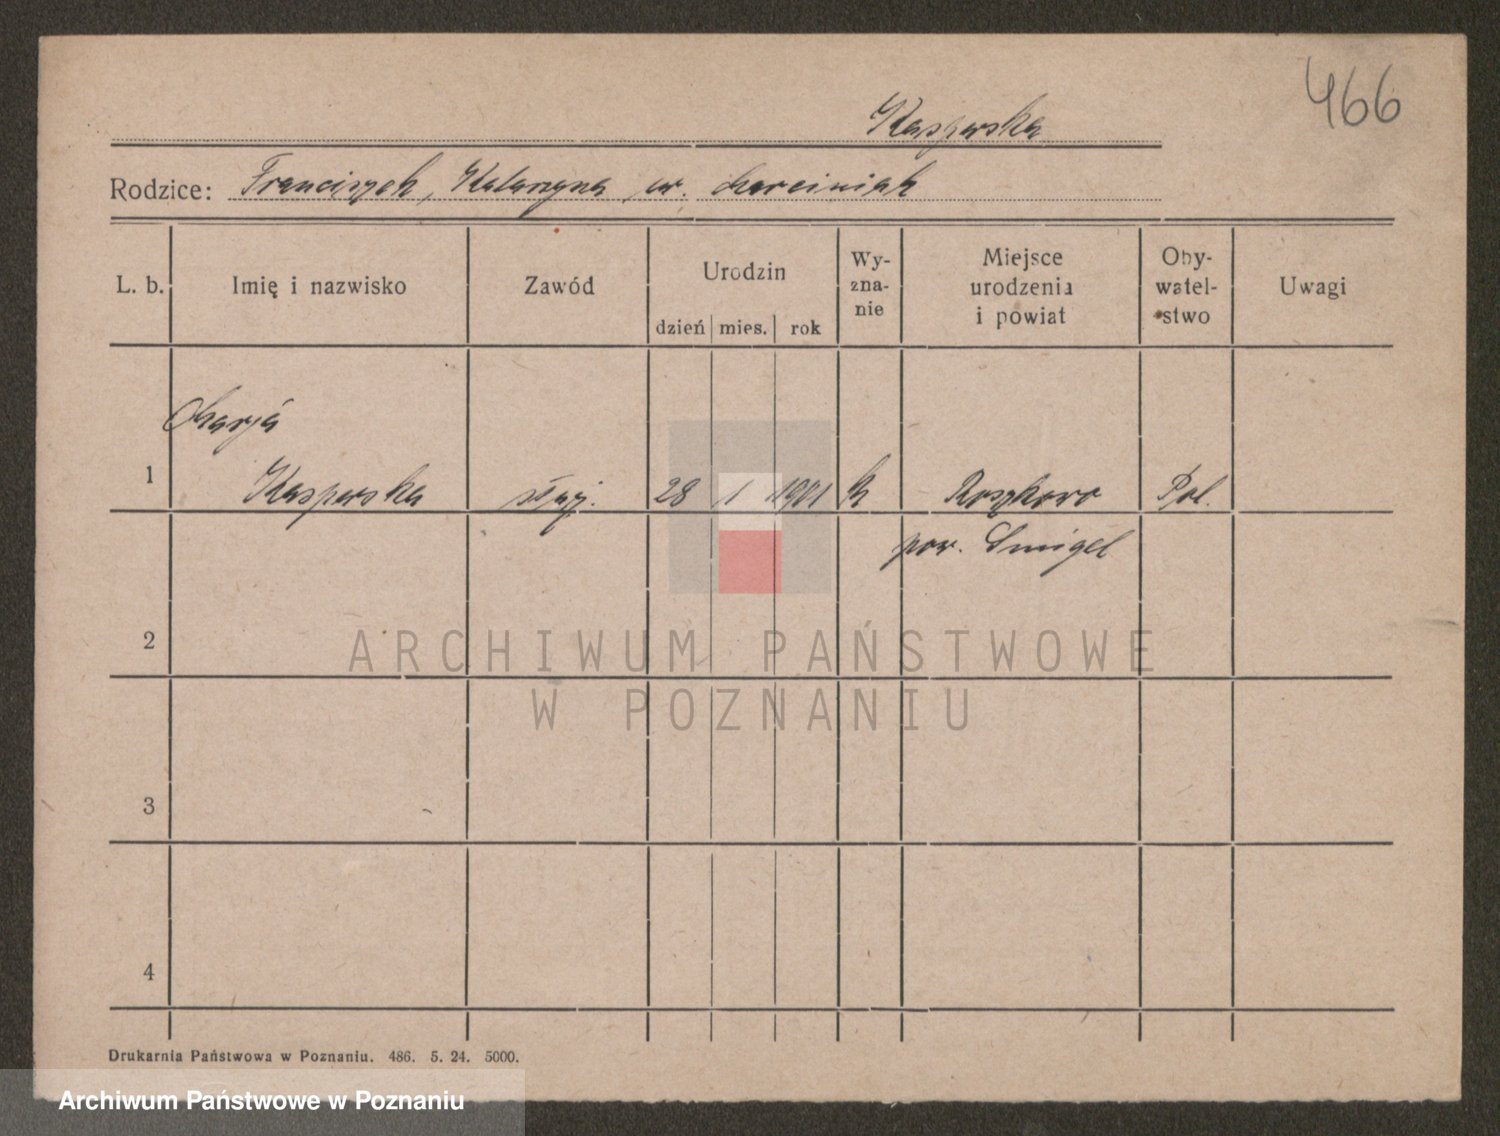 466
Kasperska
Rodzice: Franciszek, Katarzyna ur. Marciniak
L. b. Imię i nazwisko Zawód Urodzin dzień mies. rok Wy-zna-nie Miejsce urodzenia i powiat Oby-watel-stwo Uwagi
Marja
1 Kasperska służ. 28 1 1901 k Roszkowo Pol.
pow. Śmigel
2
ARCHIWUM PAŃSTWOWE
W POZNANIU
3
4
Drukarnia Państwowa w Poznaniu. 486. 5. 24. 5000.
Archiwum Państwowe w Poznaniu